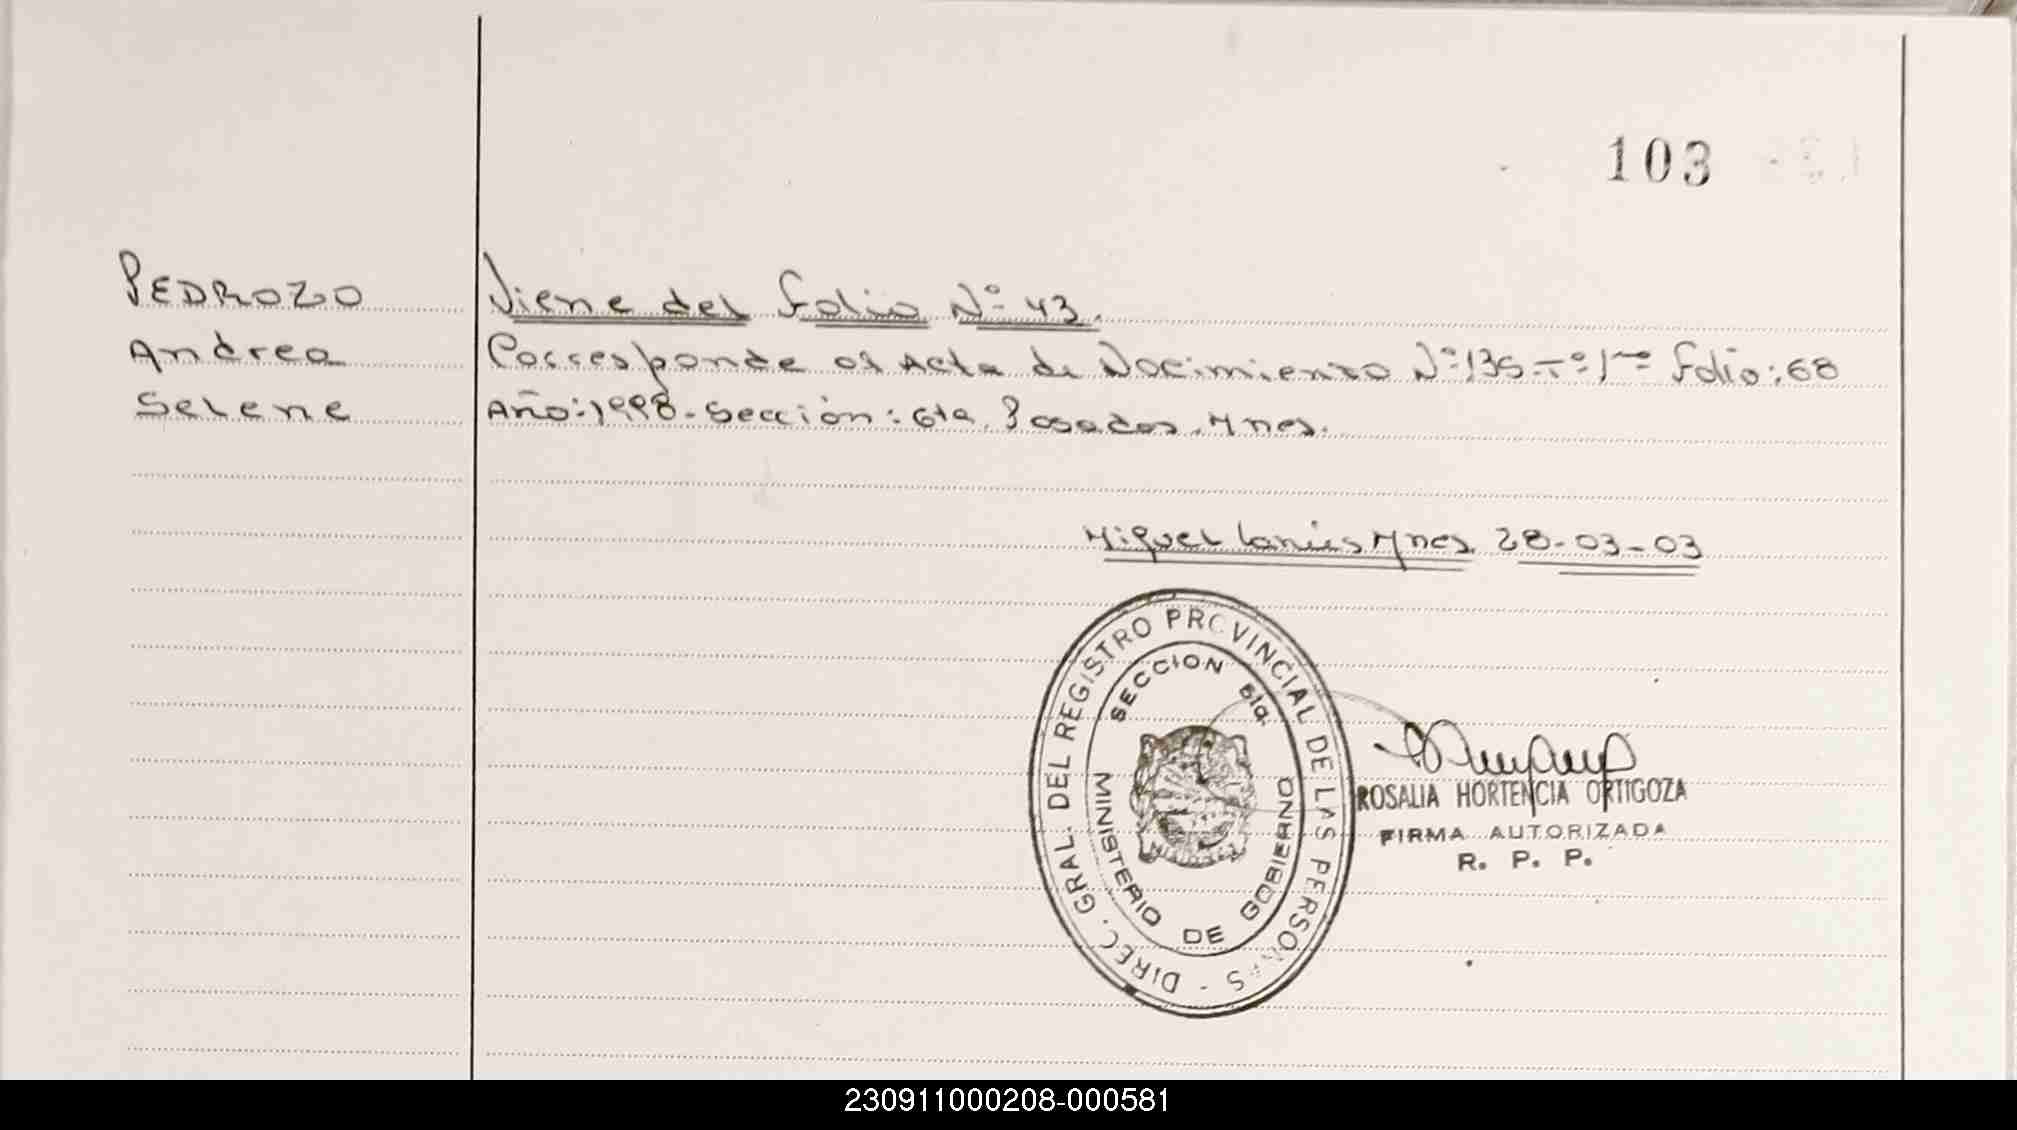 103
PEDROZO
Andrea
Selene
Viene del Folio Nº 43.
Corresponde al Acta de Nacimiento Nº 135 - Tº 1ro Folio: 68
Año: 1998 - Sección: 6ta. Posadas. Mnes.
Miguel Lanús Mnes. 28-03-03
DIREC. GRAL. DEL REGISTRO PROVINCIAL DE LAS PERSONAS -
SECCION 6ta.
MINISTERIO DE GOBIERNO
ROSALIA HORTENCIA ORTIGOZA
FIRMA AUTORIZADA
R. P. P.
230911000208-000581